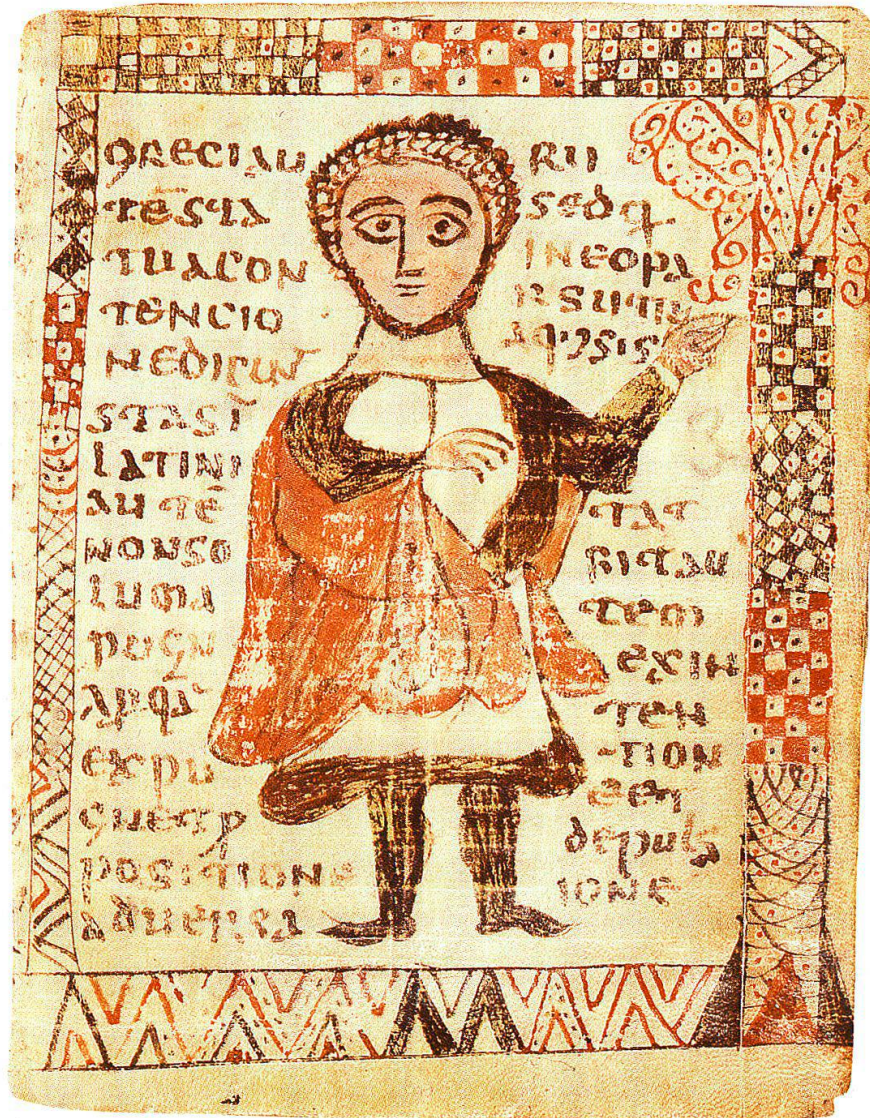 GRECIAU
TĒSTA
TUACON
TENCIO
NEDICUNT
STASĪ
LATINI
AUTĒ
NONSO
LUMA
PUGN
EXPU
GNETP
POSITIONE
ADUERSA
RII
SEDQ
INEOPA
TAT
TEM
EXIN
TEN
TION
EET
DEPULS
IONE